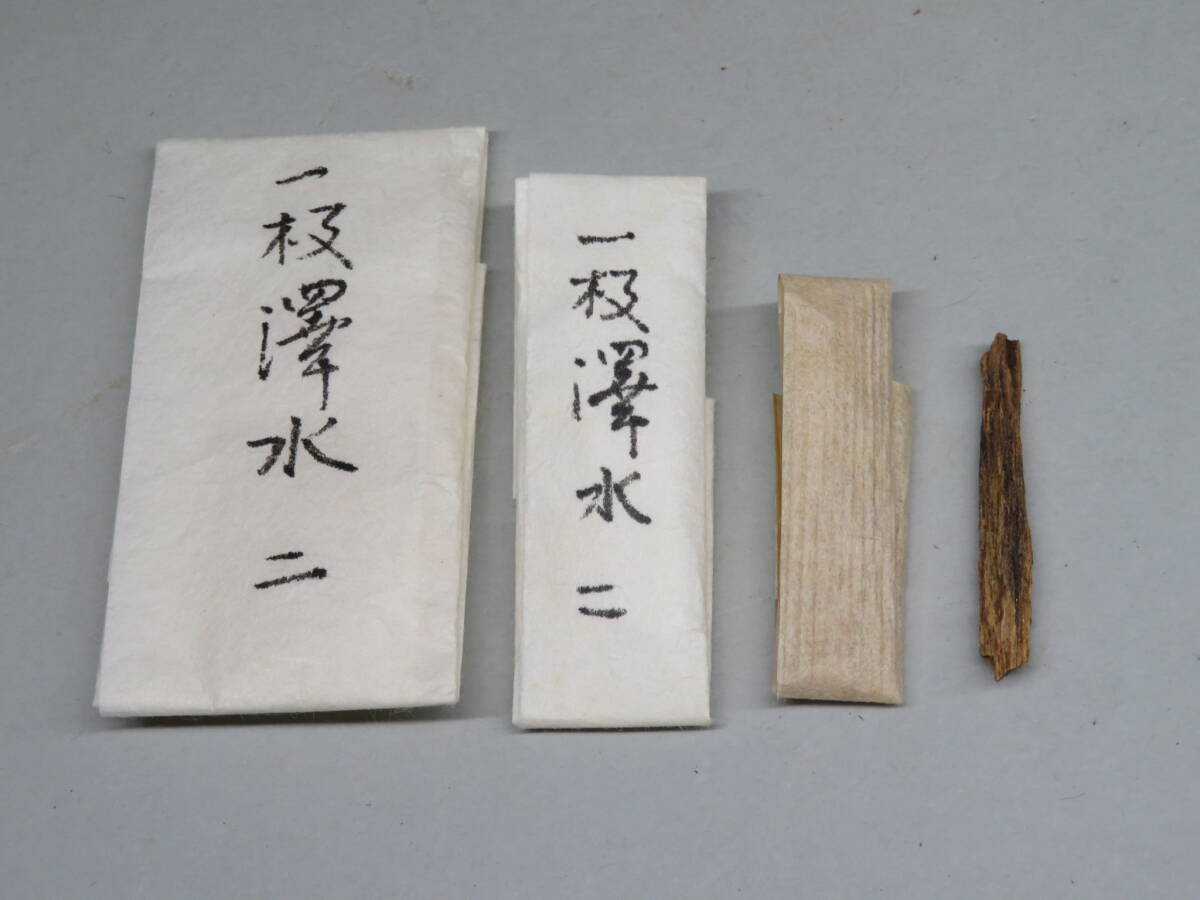 一 澤水 二
一 澤水 二